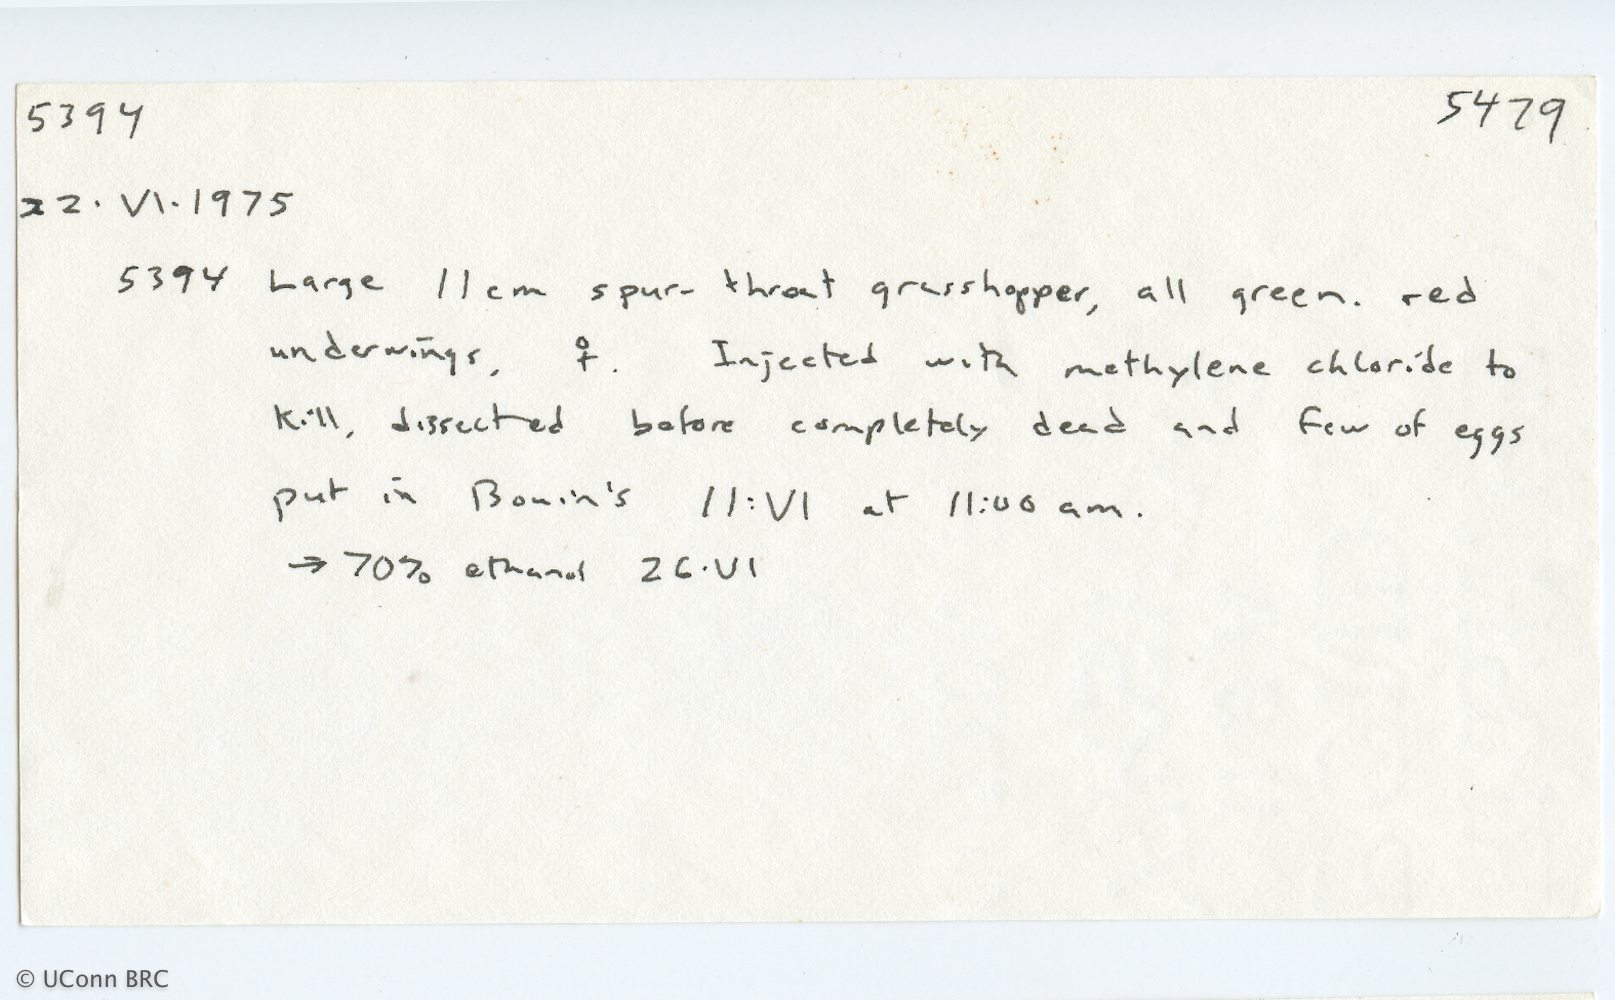 5394 5479
22. VI. 1975
5394 Large 11cm spur-throat grasshopper, all green. red
underwings, ♀. Injected with methylene chloride to
kill, dissected before completely dead and few of eggs
put in Bouin's 11:VI at 11:00 am.
→ 70% ethanol 26.VI
© UConn BRC